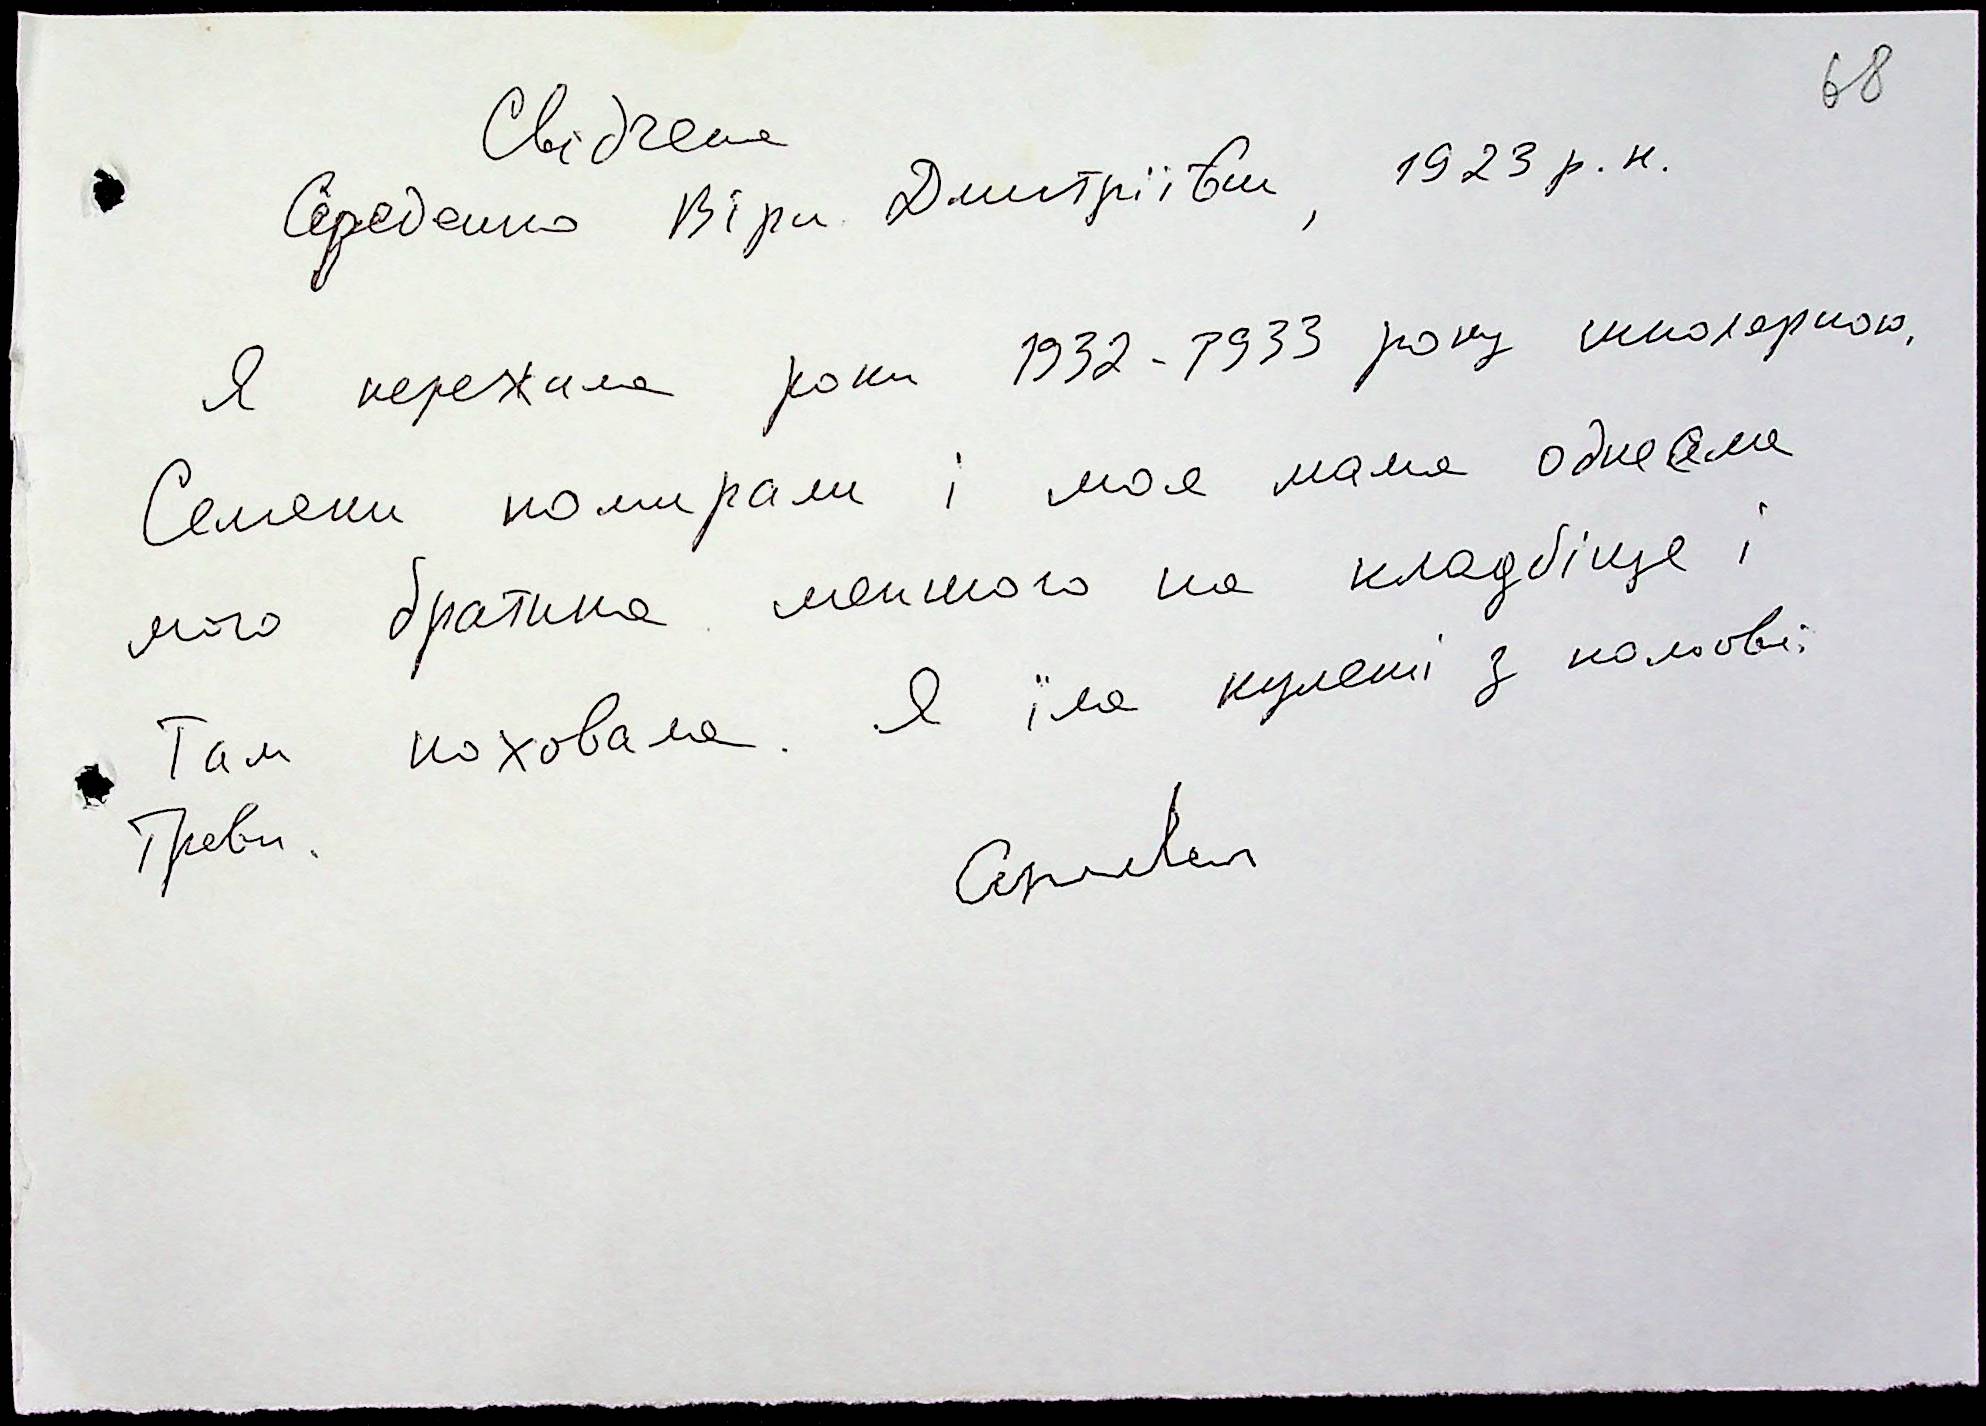 68
Свідченя
Середенко Віри Дмитріївни, 1923 р.н.
Я пережила роки 1932-1933 року школяркою.
Семеки помирали і моя мама однесла
мого братика меншого на кладбіще і
там поховала. Я їла кулеші з польові
трави.